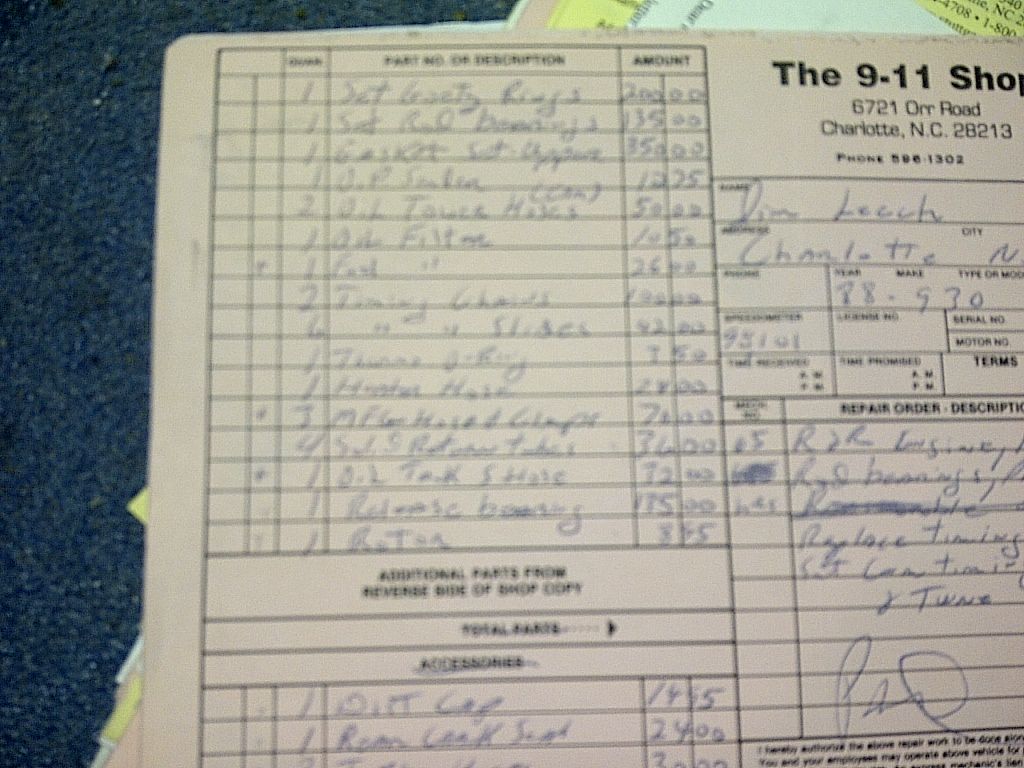 40
NC 2
-4708 • 1-800
QUAN. PART NO. OR DESCRIPTION AMOUNT
1 Set Goetz Rings 200 00
1 Set Rod bearings 135 00
1 Gasket Set Upper 350 00
1 O.P. 12 75
2 Oil Tower Hoses (Can) 50 00
1 Oil Filter 10 50
1 Fuel " 26
2 Timing
6 " " Slides 42 00
1 O-Ring 7 50
1 Heater Hose 28 00
3 Hose & Clamps 00
4 Return tubes 36 00
1 Oil Tank S Hose 72 00
1 Release bearing 175 00
1 Rotor 8 45
ADDITIONAL PARTS FROM
REVERSE SIDE OF SHOP COPY
TOTAL PARTS
ACCESSORIES
1 Dist Cap 14 95
1 Rear Seal 24 00
The 9-11 Shop
6721 Orr Road
Charlotte, N.C. 28213
PHONE 596-1302
NAME
Jim Leech
ADDRESS CITY
Charlotte N.
PHONE YEAR MAKE TYPE OR MOD
88 - 930
SPEEDOMETER LICENSE NO. SERIAL NO.
95101 MOTOR NO.
TIME RECEIVED TIME PROMISED TERMS
A.M. A.M.
P.M. P.M.
MECH. NO. REPAIR ORDER - DESCRIPTIO
R & R Engine,
Rod bearings,
Replace timing
Set Cam timing
& Tune
I hereby authorize the above repair work to be done along
You and your employees may operate above vehicle for
express mechanic's lien